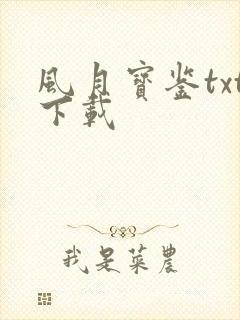 風月寶鉴txt
下載
我是菜農